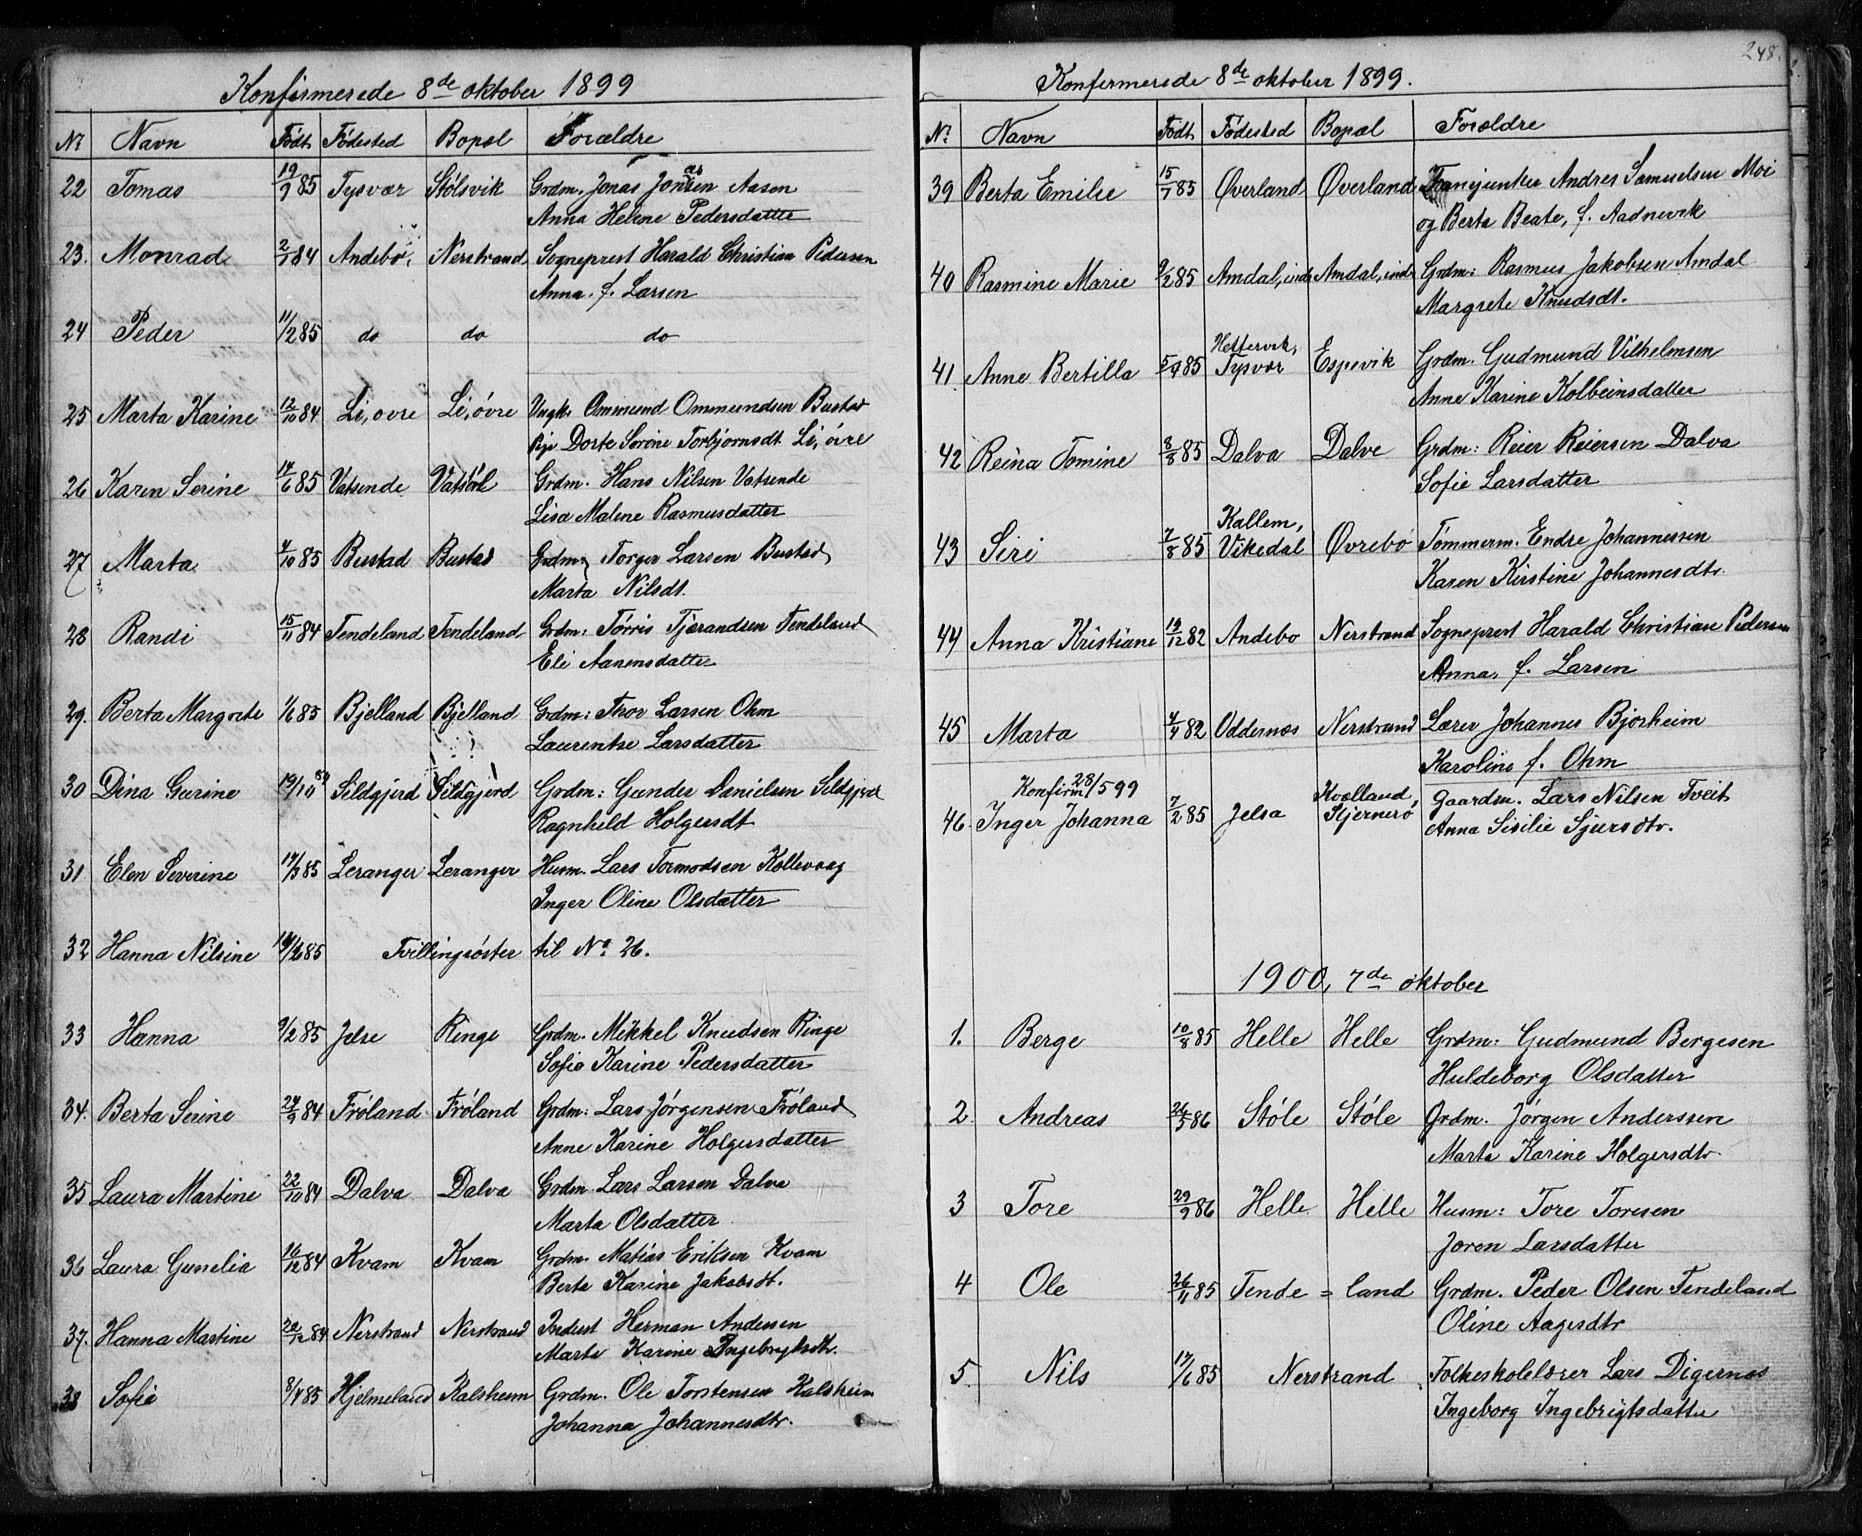 Konfirmerede 8de oktober 1899
Nr. Navn Födt Födested Bopæl Forældre
22 Tomas 19/9 85 Tysvær Stölsvik Grdm. Jonas Jonasen Aasen
Anna Helene Pedersdatter
23. Monrad 2/1 84 Andebo, Nerstrand Sogneprest Harald Christian Pedersen
Anna f. Larsen
24 Peder 11/2 85 do do do
25 Marta Karine 12/10 84 Li, övre Li, övre Ungk. Ommund Ommundsen Bustad
Pige Dorte Serine Torbjörnsdt. Li, övre
26 Karen Serine 14/6 85 Vatsende Grdm. Hans Nilsen Vatsende
Lisa Malene Rasmusdatter
27 Marta 4/10 85 Bustad Bustad Grdm. Torger Larsen Bustad
Marta Nilsdt.
28 Randi 15/11 84 Tendeland Tendeland Grdm: Törris Tjerandsen Tendeland
Eli Aanensdatter
29. Berta Margrete 1/6 85 Bjelland Bjelland Grdm: Thor Larsen Ohm
Laurentse Larsdatter
30 Dina Gurine 19/10 84 Sildgjerd Sildgjerd Grdm: Gunder Danielsen Sildgjerd
Ragnhild Holgersdt
31 Elen Severine 17/3 85 Leranger Leranger Husm. Lars Tormodsen Kollevaag
Inger Oline Olsdatter
32 Hanna Nilsine 14/6 85 Tvillingsöster til No 26.
33 Hanna 9/2 85 Jelse Ringe Grdm. Mikkel Knudsen Ringe
Sofie Karine Pedersdatter
34. Berta Serine 24/9 84 Fröland Fröland Grdm: Lars Jörgensen Fröland
Anne Karine Holgersdatter
35 Laura Martine 22/10 84 Dalva Dalva Grdm Lars Larsen Dalva
Marta Olsdatter
36 Laura Gunelia 16/12 84 Kvam Kvam Grdm. Matias Eriksen Kvam
Berta Karine Jakobsdt.
37. Hanna Martine 20/12 84 Nerstrand Nerstrand Inderst Herman Andersen
Marta Karine Ingebrigtsdtr.
38 Sofie 8/4 85 Hjelmeland Kalsheim Grdm. Ole Torstensen Kalsheim
Johanna Johannesdtr.
248.
Konfermerede 8de oktober 1899.
Nr. Navn Födt Födested Bopæl Forældre
39 Berta Emilie 15/7 85 Øverland Øverland Andres Samuelsen Moi
og Berta Beate, f. Aadnevik
40 Rasmine Marie 9/2 85 Amdal, indr Amdal, indr Grdm: Rasmus Jakobsen Amdal
Margrete Knudsdt.
41. Anne Bertilla 5/9 85 Hettervik, Tysvær Espevik Grdm. Gudmund Vilhelmsen
Anne Karine Kolbeinsdatter
42 Reina Tomine 8/8 85 Dalva Dalve Grdm: Reier Reiersen Dalva
Sofie Larsdatter
43 Siri 7/8 85 Kallem, Vikedal Øvrebö Tömmerm. Endre Johannessen
Karen Kirstine Johannesdtr.
44 Anna Kristiane 19/12 82 Andebo Nerstrand Sogneprest Harald Christian Pedersen
Anna, f. Larsen
45 Marta 4/4 82 Oddernæs Nerstrand Lærer Johannes Bjorheim
Karoline f. Ohm
Konfirm 28/5 99
46. Inger Johanna 7/2 85 Jelsa Kvalland, Stjernerö Gaardm. Lars Nilsen Tveit
Anna Sisilie Sjursdtr.
1900, 7de oktober
1. Berge 10/8 85 Helle Helle Grdm: Gudmund Bergesen
Huldeborg Olsdatter
2 Andreas 26/5 86 Stöle Stöle Grdm. Jörgen Anderssen
Marta Karine Holgersdtr.
3 Tore 29/9 86 Helle Helle Husm: Tore Toresen
Joren Larsdatter
4 Ole 26/11 85 Tende = land Grdm. Peder Olsen Tendeland
Oline Aagesdtr
5. Nils 17/6 85 Nerstrand Folkeskolelærer Lars Digernæs
Ingeborg Ingebrigtsdatter